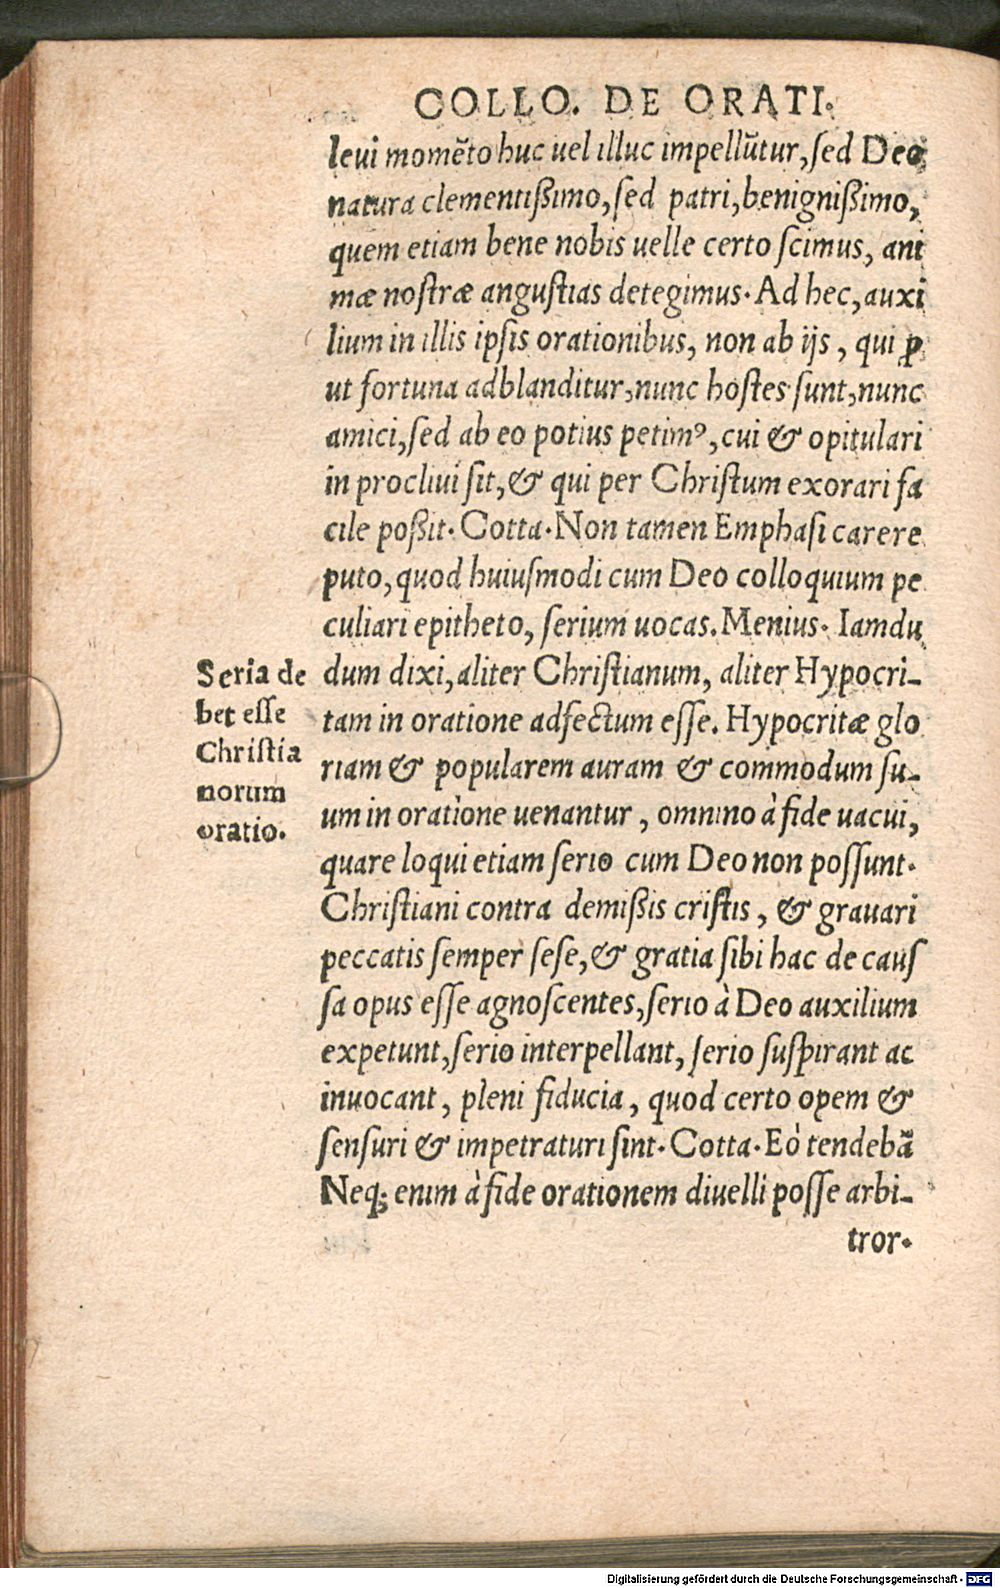 COLLO. DE ORATI.
levi momẽto huc uel illuc impellũtur, sed Deo
natura clementißimo, sed patri, benignißimo,
quem etiam bene nobis uelle certo scimus, ani
mæ nostræ angustias detegimus. Ad hec, auxi
lium in illis ipsis orationibus, non ab ijs, qui ꝓ
ut fortuna adblanditur, nunc hostes sunt, nunc
amici, sed ab eo potius petimꝰ, cui & opitulari
in proclivi sit, & qui per Christum exorari fa
cile poßit. Cotta. Non tamen Emphasi carere
puto, quod huiusmodi cum Deo colloquium pe
culiari epitheto, serium uocas. Menius. Iamdu
dum dixi, aliter Christianum, aliter Hypocri-
tam in oratione adfectum esse. Hypocritæ glo
riam & popularem auram & commodum su-
um in oratione uenantur, omnino à fide uacui,
quare loqui etiam serio cum Deo non possunt.
Christiani contra demißis cristis, & gravari
peccatis semper sese, & gratia sibi hac de caus
sa opus esse agnoscentes, serio à Deo auxilium
expetunt, serio interpellant, serio suspirant ac
invocant, pleni fiducia, quod certo opem &
sensuri & impetraturi sint. Cotta. Eò tendebã
Neq; enim à fide orationem divelli posse arbi-
tror.
Seria de
bet esse
Christia
norum
oratio.
Digitalisierung gefördert durch die Deutsche Forschungsgemeinschaft - DFG